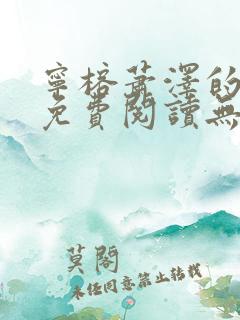 寧格蕭澤的
免費閱讀無
莫閣
未經同意禁止轉載